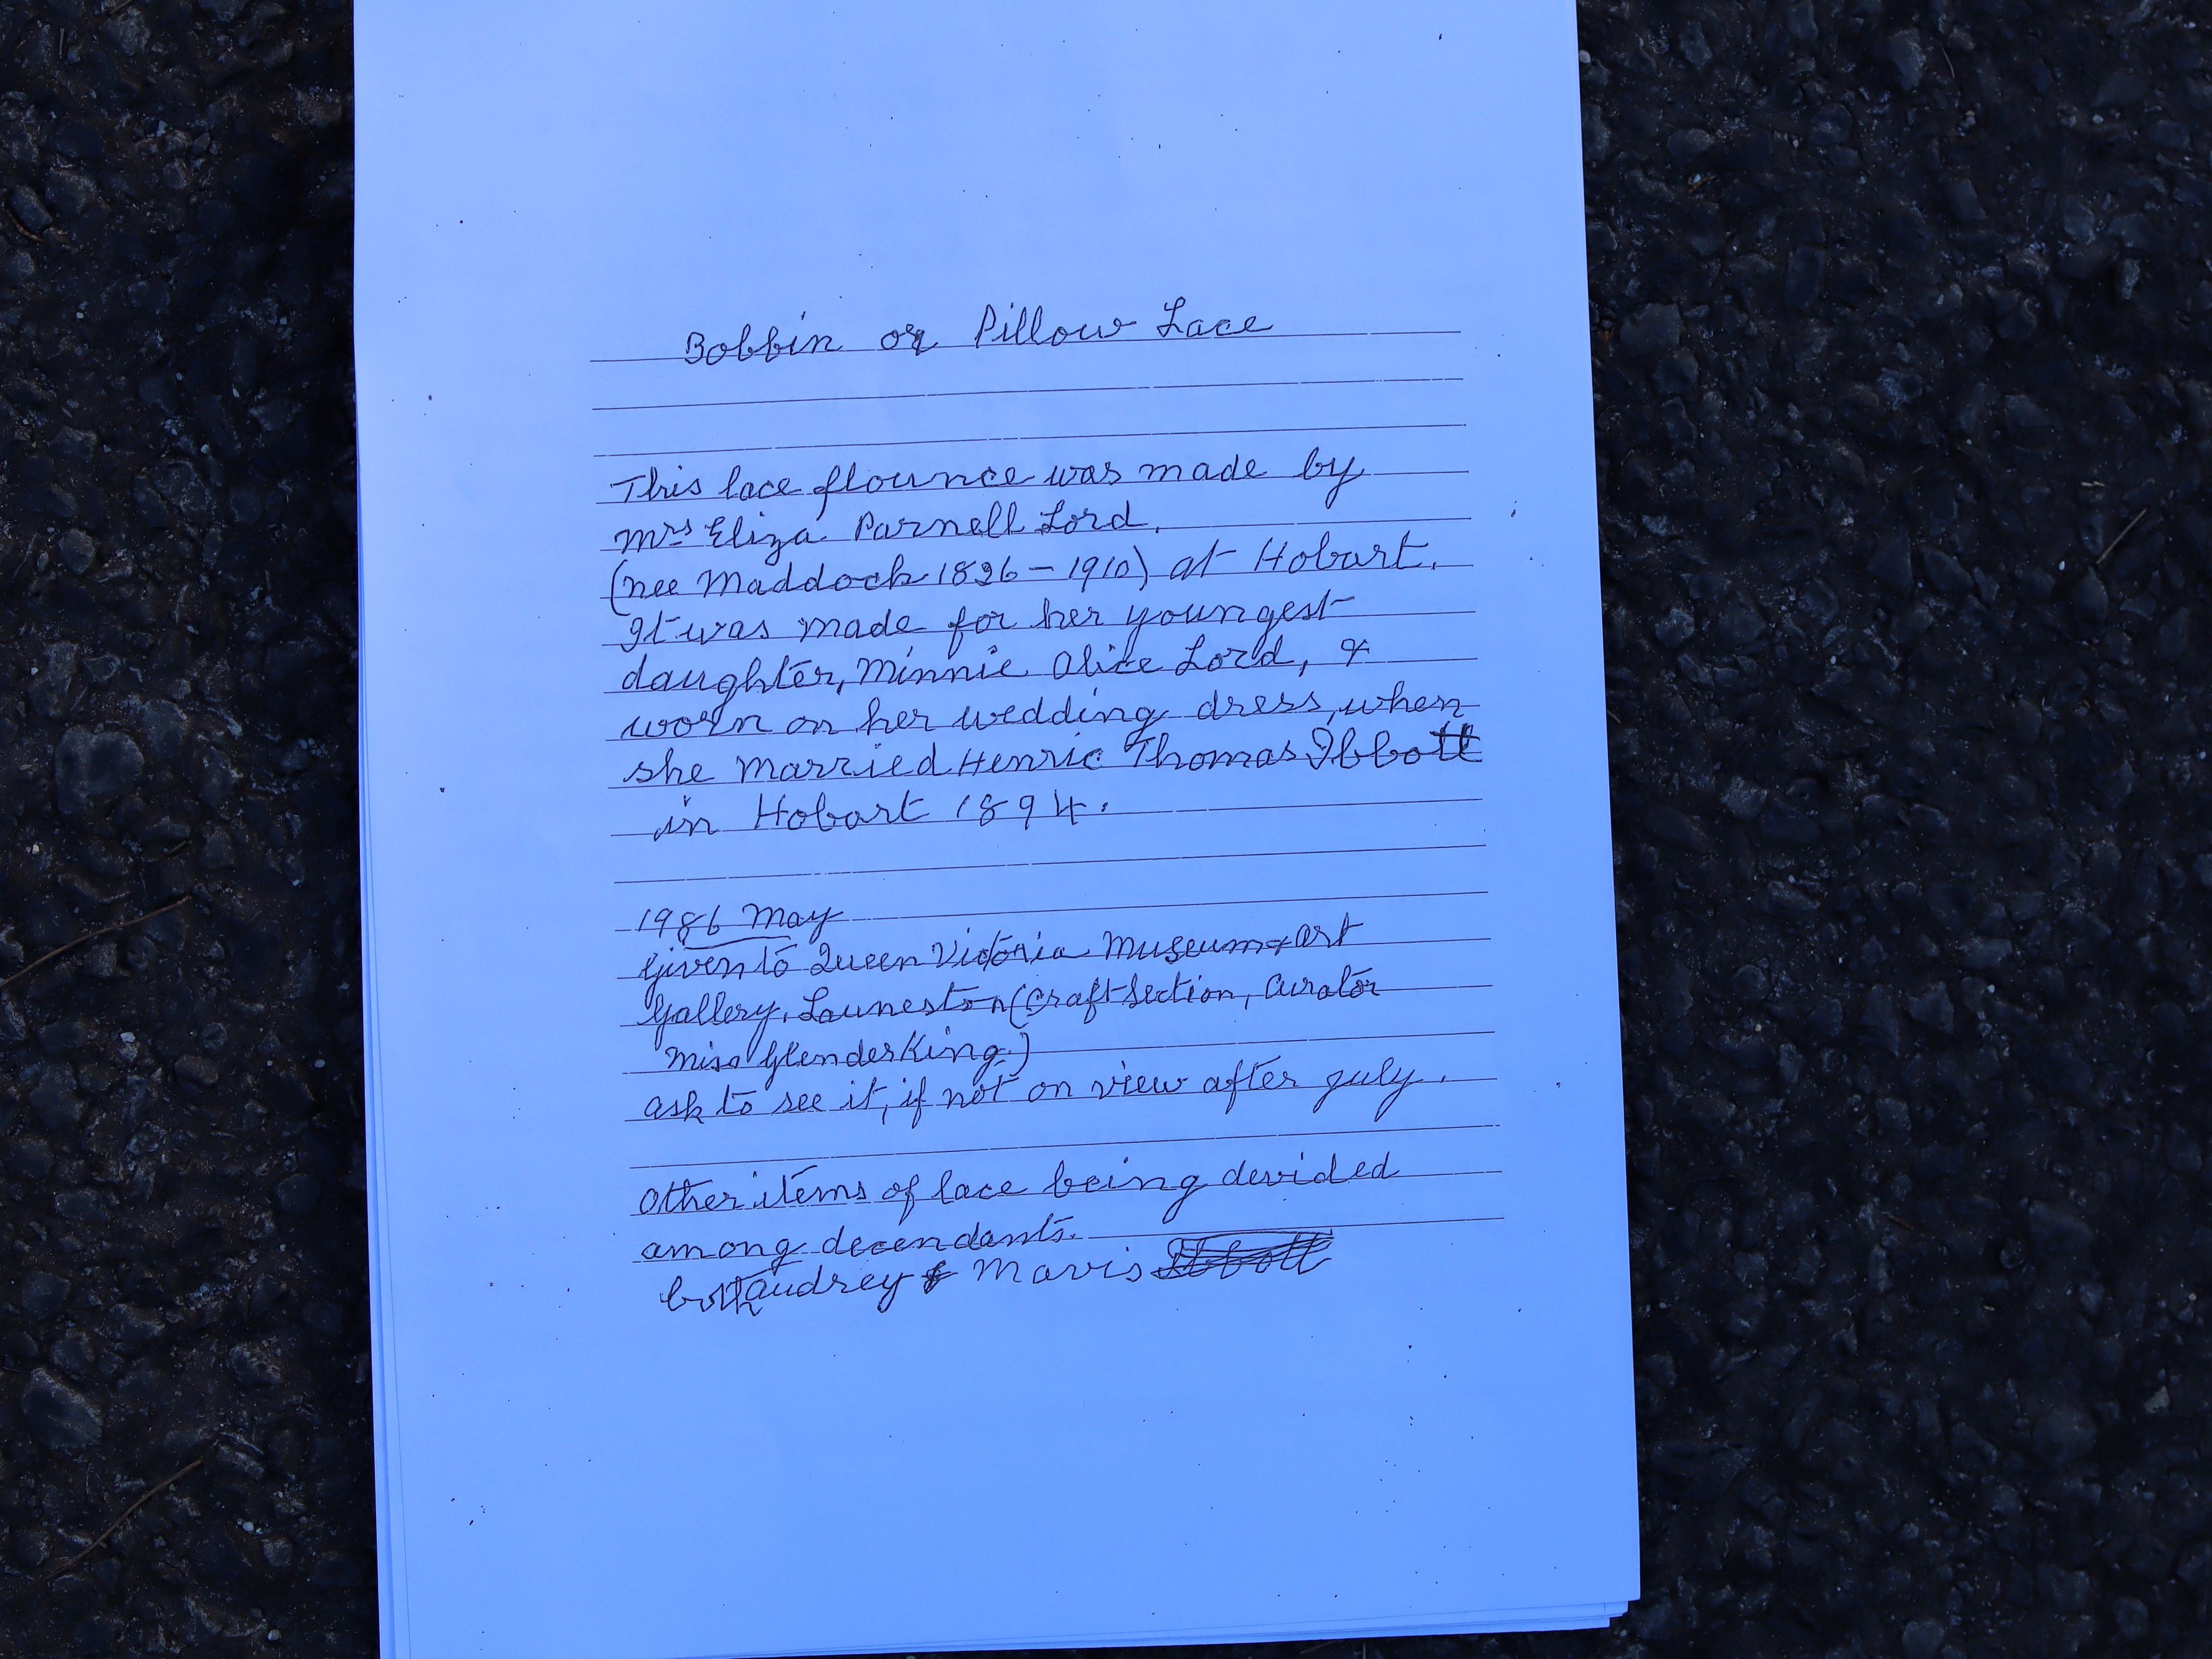 Bobbin or Pillow Lace
This lace flounce was made by
Mrs Eliza Parnell Lord.
(nee Maddock 1826 - 1910) at Hobart.
It was made for her youngest
daughter, Minnie Alice Lord, &
worn on her wedding dress, when
she married Henric Thomas Ibbott
in Hobart 1894.
1986 May
given to Queen Victoria Museum & Art
Gallery, Launeston (Craft Section, Curator
Miss Glender King.)
ask to see it, if not on view after july.
Other items of lace being devided
among decendants.
both Audrey & Mavis Ibbott